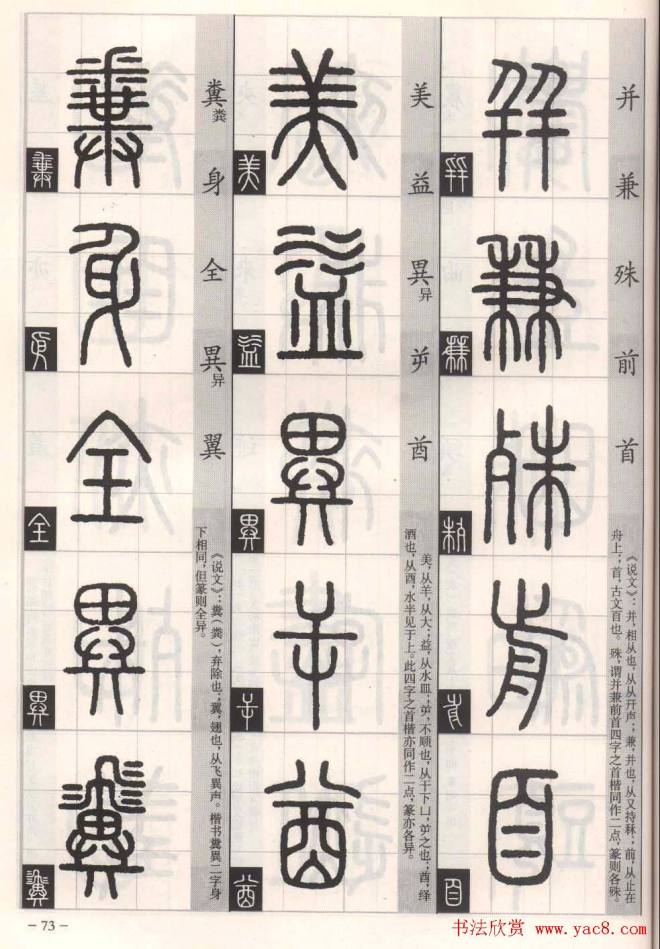 并 兼 殊 前 首
《说文》：并，相从也，从从开声；兼，并也，从又持秝；前，从止在
舟上；首，古文百也。殊，谓并兼前首四字之首楷同作二点，篆则各殊。
美 益 異异 屰 酋
美，从羊，从大；益，从水皿；屰，不顺也，从干下凵；屰之也；酋，绎
酒也，从酉，水半见于上。此四字之首楷亦同作二点，篆亦各异。
糞粪 身 全 異异 翼
《说文》：糞（粪），弃除也；翼，翅也，从飞異声。楷书糞異二字身
下相同，但篆则全异。
－73－
书法欣赏 www.yac8.com